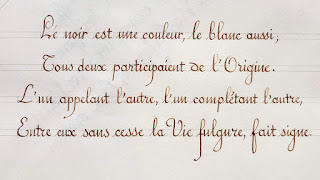 Le noir est une couleur, le blanc aussi;
Tous deux participaient de l'Origine.
L'un appelant l'autre, l'un complétant l'autre,
Entre eux sans cesse la Vie fulgure, fait signe.